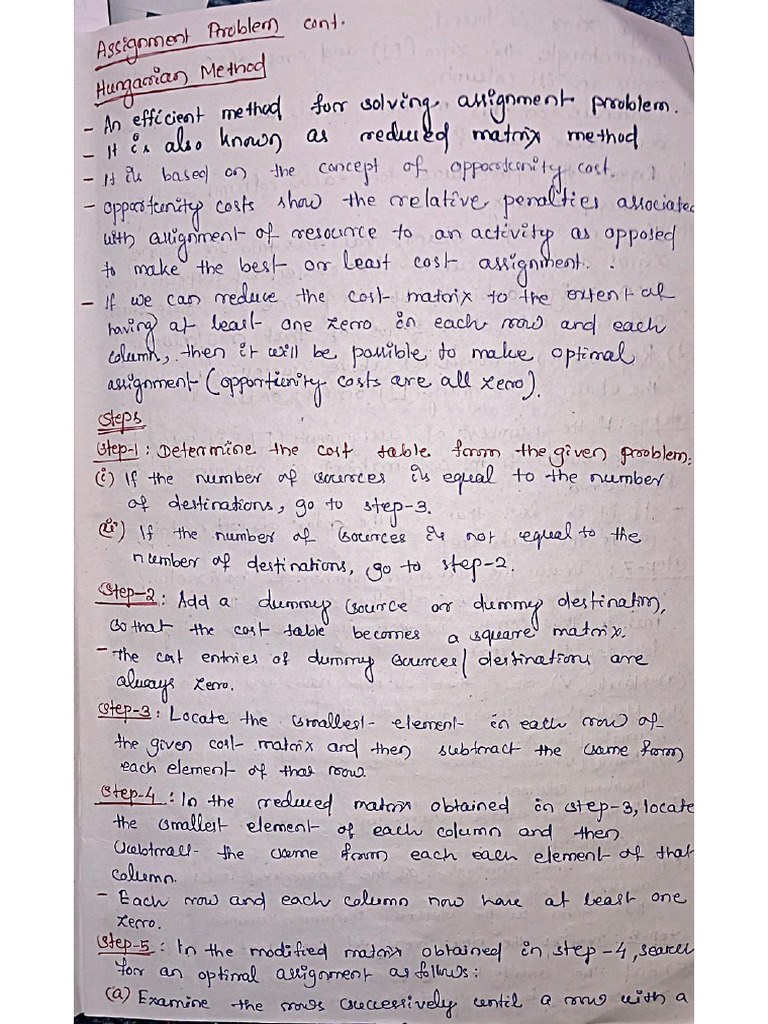 Assignment Problem cont.
Hungarian Method
- An efficient method for solving assignment problem.
- It is also known as reduced matrix method
- It is based on the concept of opportunity cost.
- opportunity costs show the relative penalties associated
with assignment of resource to an activity as opposed
to make the best or least cost assignment.
- If we can reduce the cost matrix to the extent of
having at least one zero in each row and each
column, then it will be possible to make optimal
assignment (opportunity costs are all zero).
Steps
Step-1: Determine the cost table from the given problem.
(i) If the number of sources is equal to the number
of destinations, go to step-3.
(ii) If the number of sources is not equal to the
number of destinations, go to step-2.
Step-2: Add a dummy source or dummy destination,
so that the cost table becomes a square matrix.
- the cost entries of dummy sources/destinations are
always zero.
Step-3: Locate the smallest element in each row of
the given cost matrix and then subtract the same from
each element of that row.
Step-4: In the reduced matrix obtained in step-3, locate
the smallest element of each column and then
subtract the same from each each element of that
column.
- Each row and each column now have at least one
zero.
Step-5: In the modified matrix obtained in step-4, search
for an optimal assignment as follows:
(a) Examine the rows successively until a row with a